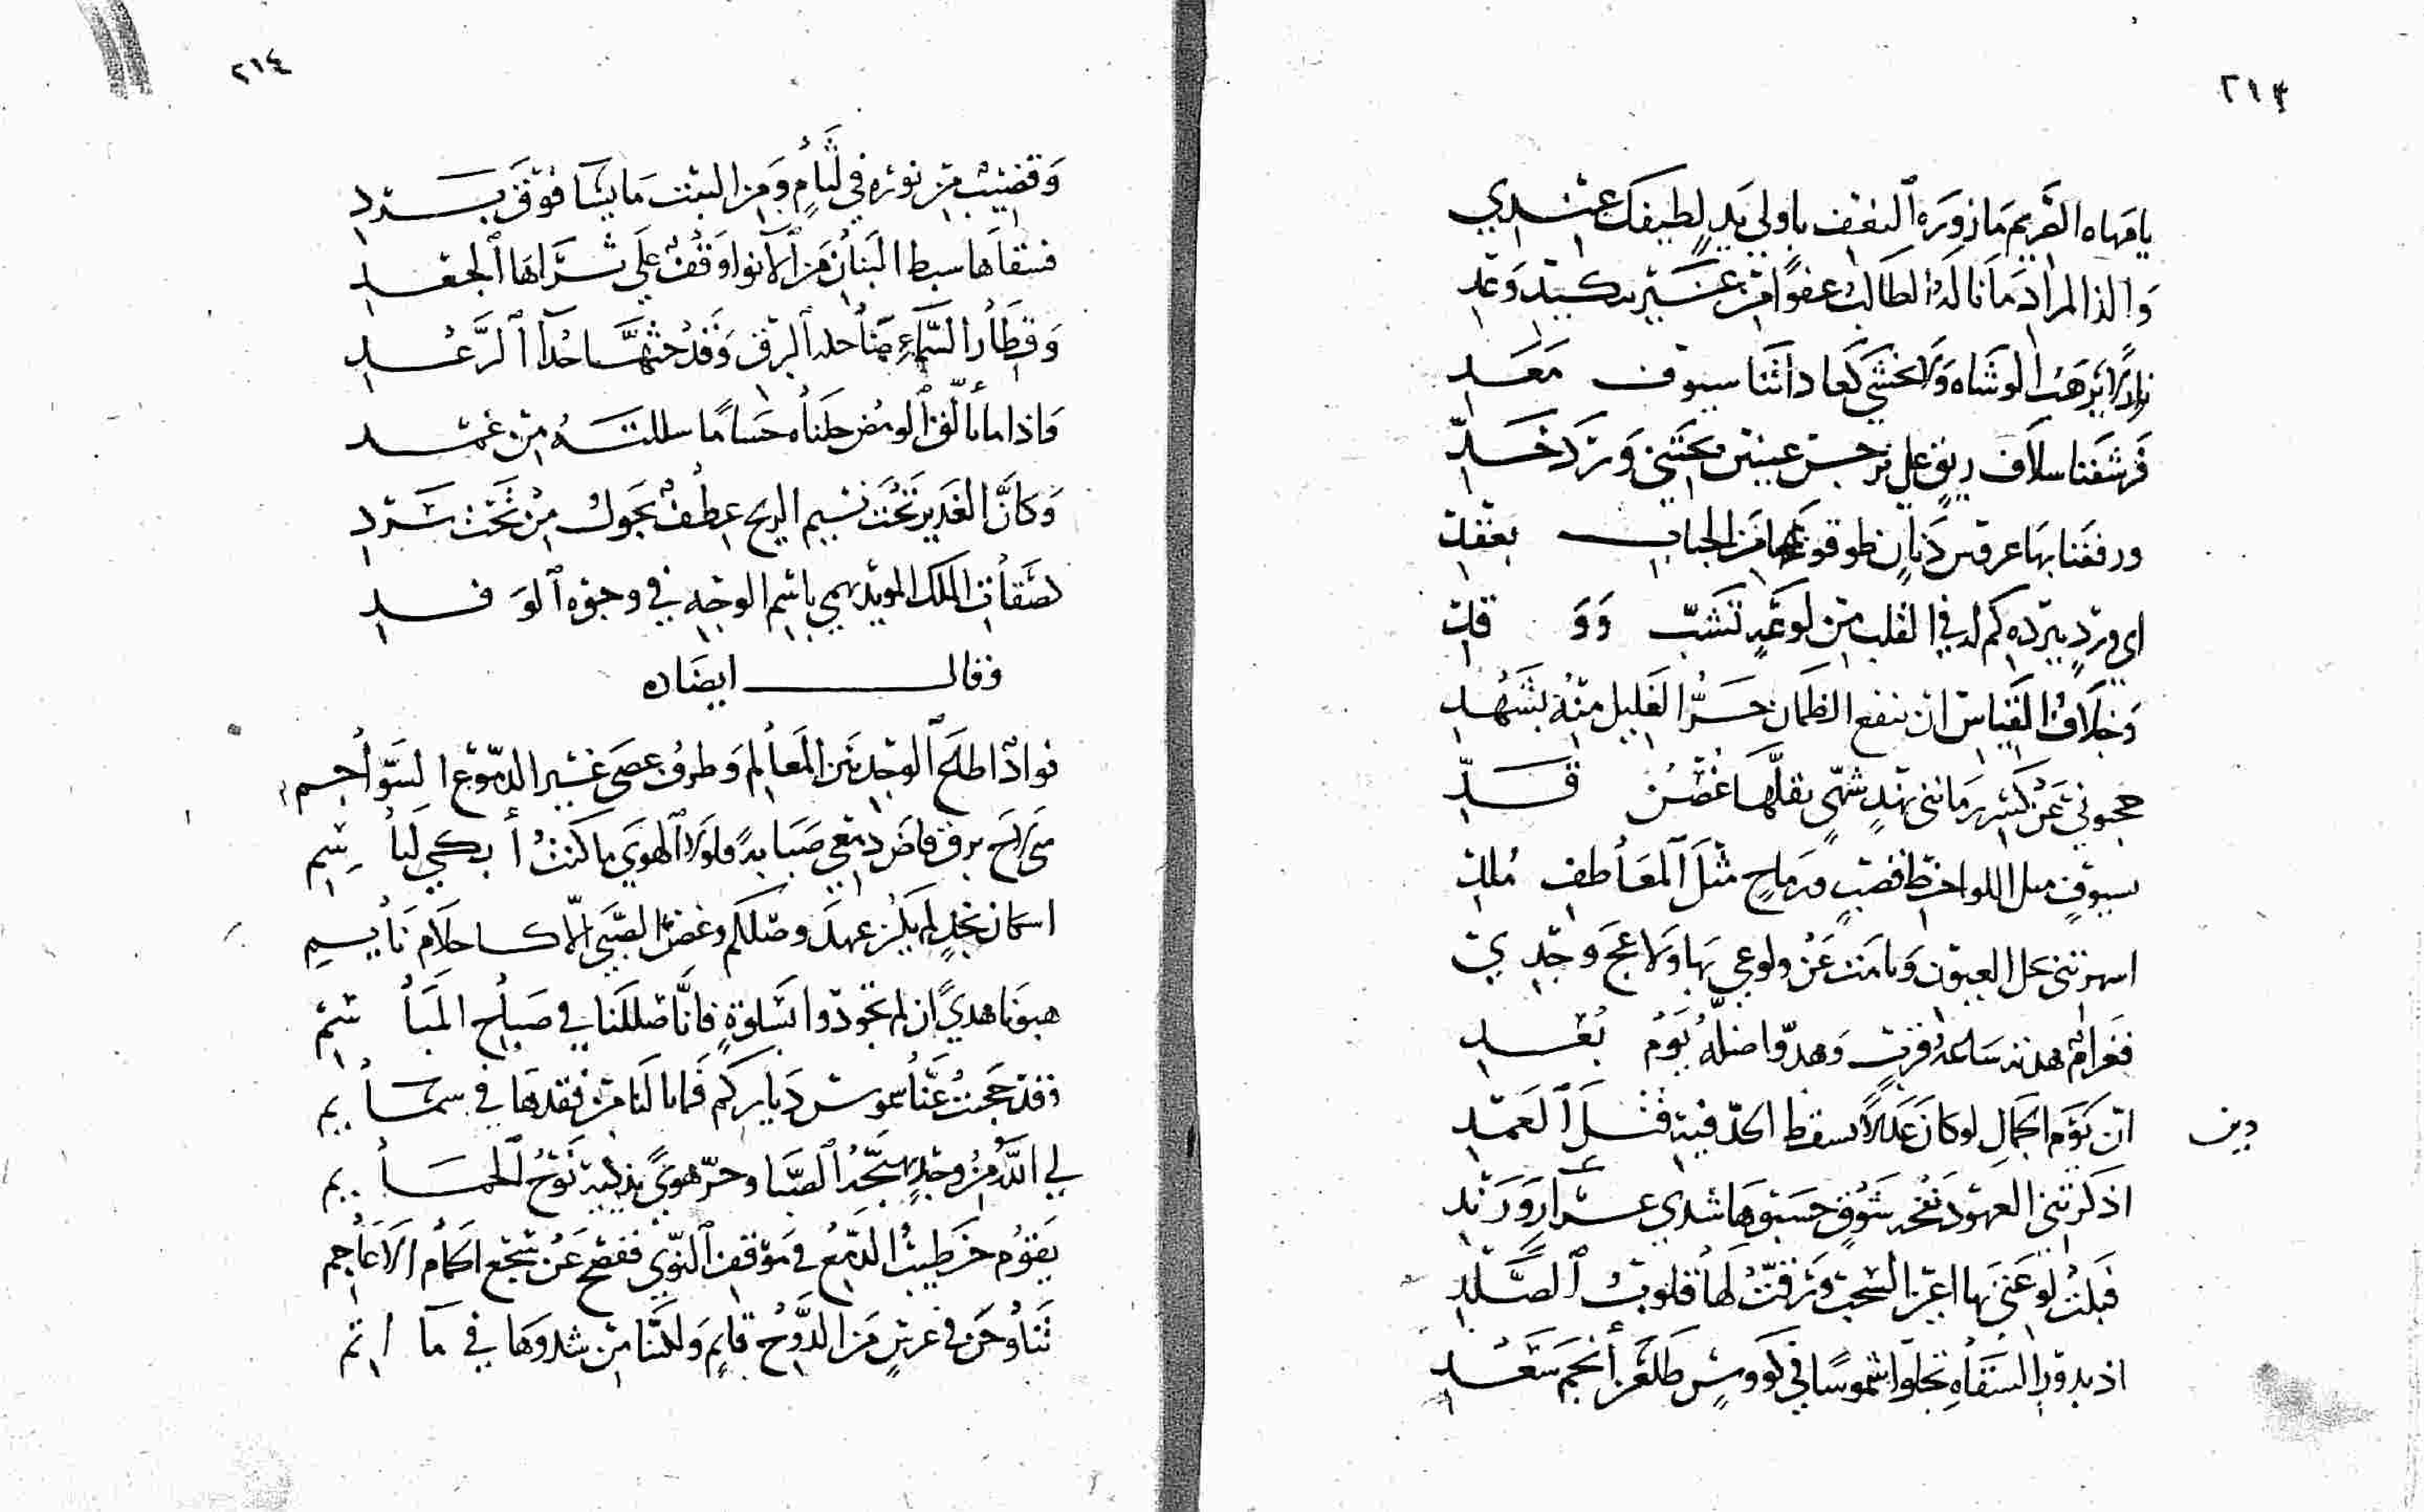 ٢١٣
يا مهاه الصريم ما زوره الىفىف باولي يد لطيفك عندي
والذ المراد ما ناله الطالب عفوا من غير نكيد وعد
زار لا يرهب الوشاه ولا يخشى كعاداتنا سيوف معد
فرشفنا سلاف ريق على نرجس عينين يجتنى وورد خد
ورفعنا بها عروس دنان طوقوتها من الحباب بعقد
اي ورد ببرده كم له في القلب من لوعه تشب ووقد
وخلاف القياس ان ينقع الظمان حر الغليل منه بشهد
حجبوني عن كثير رمانتى نهد شهي يقلها غصن قد
بسيوف مثل اللواحظ قضب ورماح مثل المعاطف ملد
اسهرتنى نجل العيون ونامت عن ولوعي بها ولاعج وجدي
فغرام هدته ساعة قرب وهدوا ضله يوم بعد
ان يوم الجمال لو كان عدلا يسقط الحد فيه قتل العمد
دين
اذكرتني العهود نفحه شوق حسبوها شدي عرار ورند
قبلت لو عنى بها اعين السحب ورقت لها قلوب الصلد
اذ بدور السقاه تجلوا شموسا في كووس طلعن أنجم سعد
٢١٤
وقضيب من نوره في لثام ومن النبت مايسا فوق برد
فسقاها سبط البنان من الانوا وقف على ثراها الجعد
وقطار السماء حلد البرق وقد حثها حدا الرعد
واذا ما تالق الومض خلناه حساما سللته من غمد
وكان الغدير تحت نسيم الريح عطف يجول من تحت برد
لصفات الملك المويد يهمي باسم الوجه في وجوه الوفد
وقال ايضاه
فواد اطاح الوجد بين المعالم وطرف عصى غير الدموع السواجم
متى لاح برق فاض دمعي صبابة ولولا الهوي ما كنت أبكي لباسم
اسكان نجد لم يكن عهد وصلكم وغض الصبي الا كاحلام نايم
هبونا هدي ان لم تجودوا بسلوة فانا ضللنا في صباح المباسم
وقد حجبت عنا شموس دياركم فما بالنا من فقدها في سمايم
لي الله من وجد يهيجه الصبا وحر هوي يذكيه نوح الحمايم
يقوم خطيب الدمع في موقف النوي فيفصح عن سجع الحمام الاعاجم
تناوحن في عرس من الدوح قايم ولكننا من شدوها في ماتم